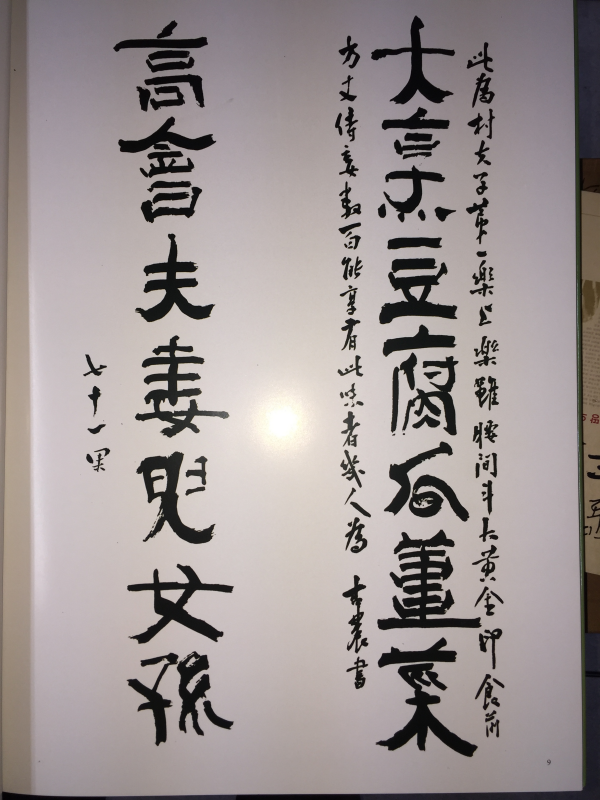 此為村夫子第一樂上樂雖腰間斗大黃金印食前
大烹豆腐瓜薑菜
方丈侍妾數百能享有此味者幾人為 古農書
高會夫妻兒女孫
七十一果
9